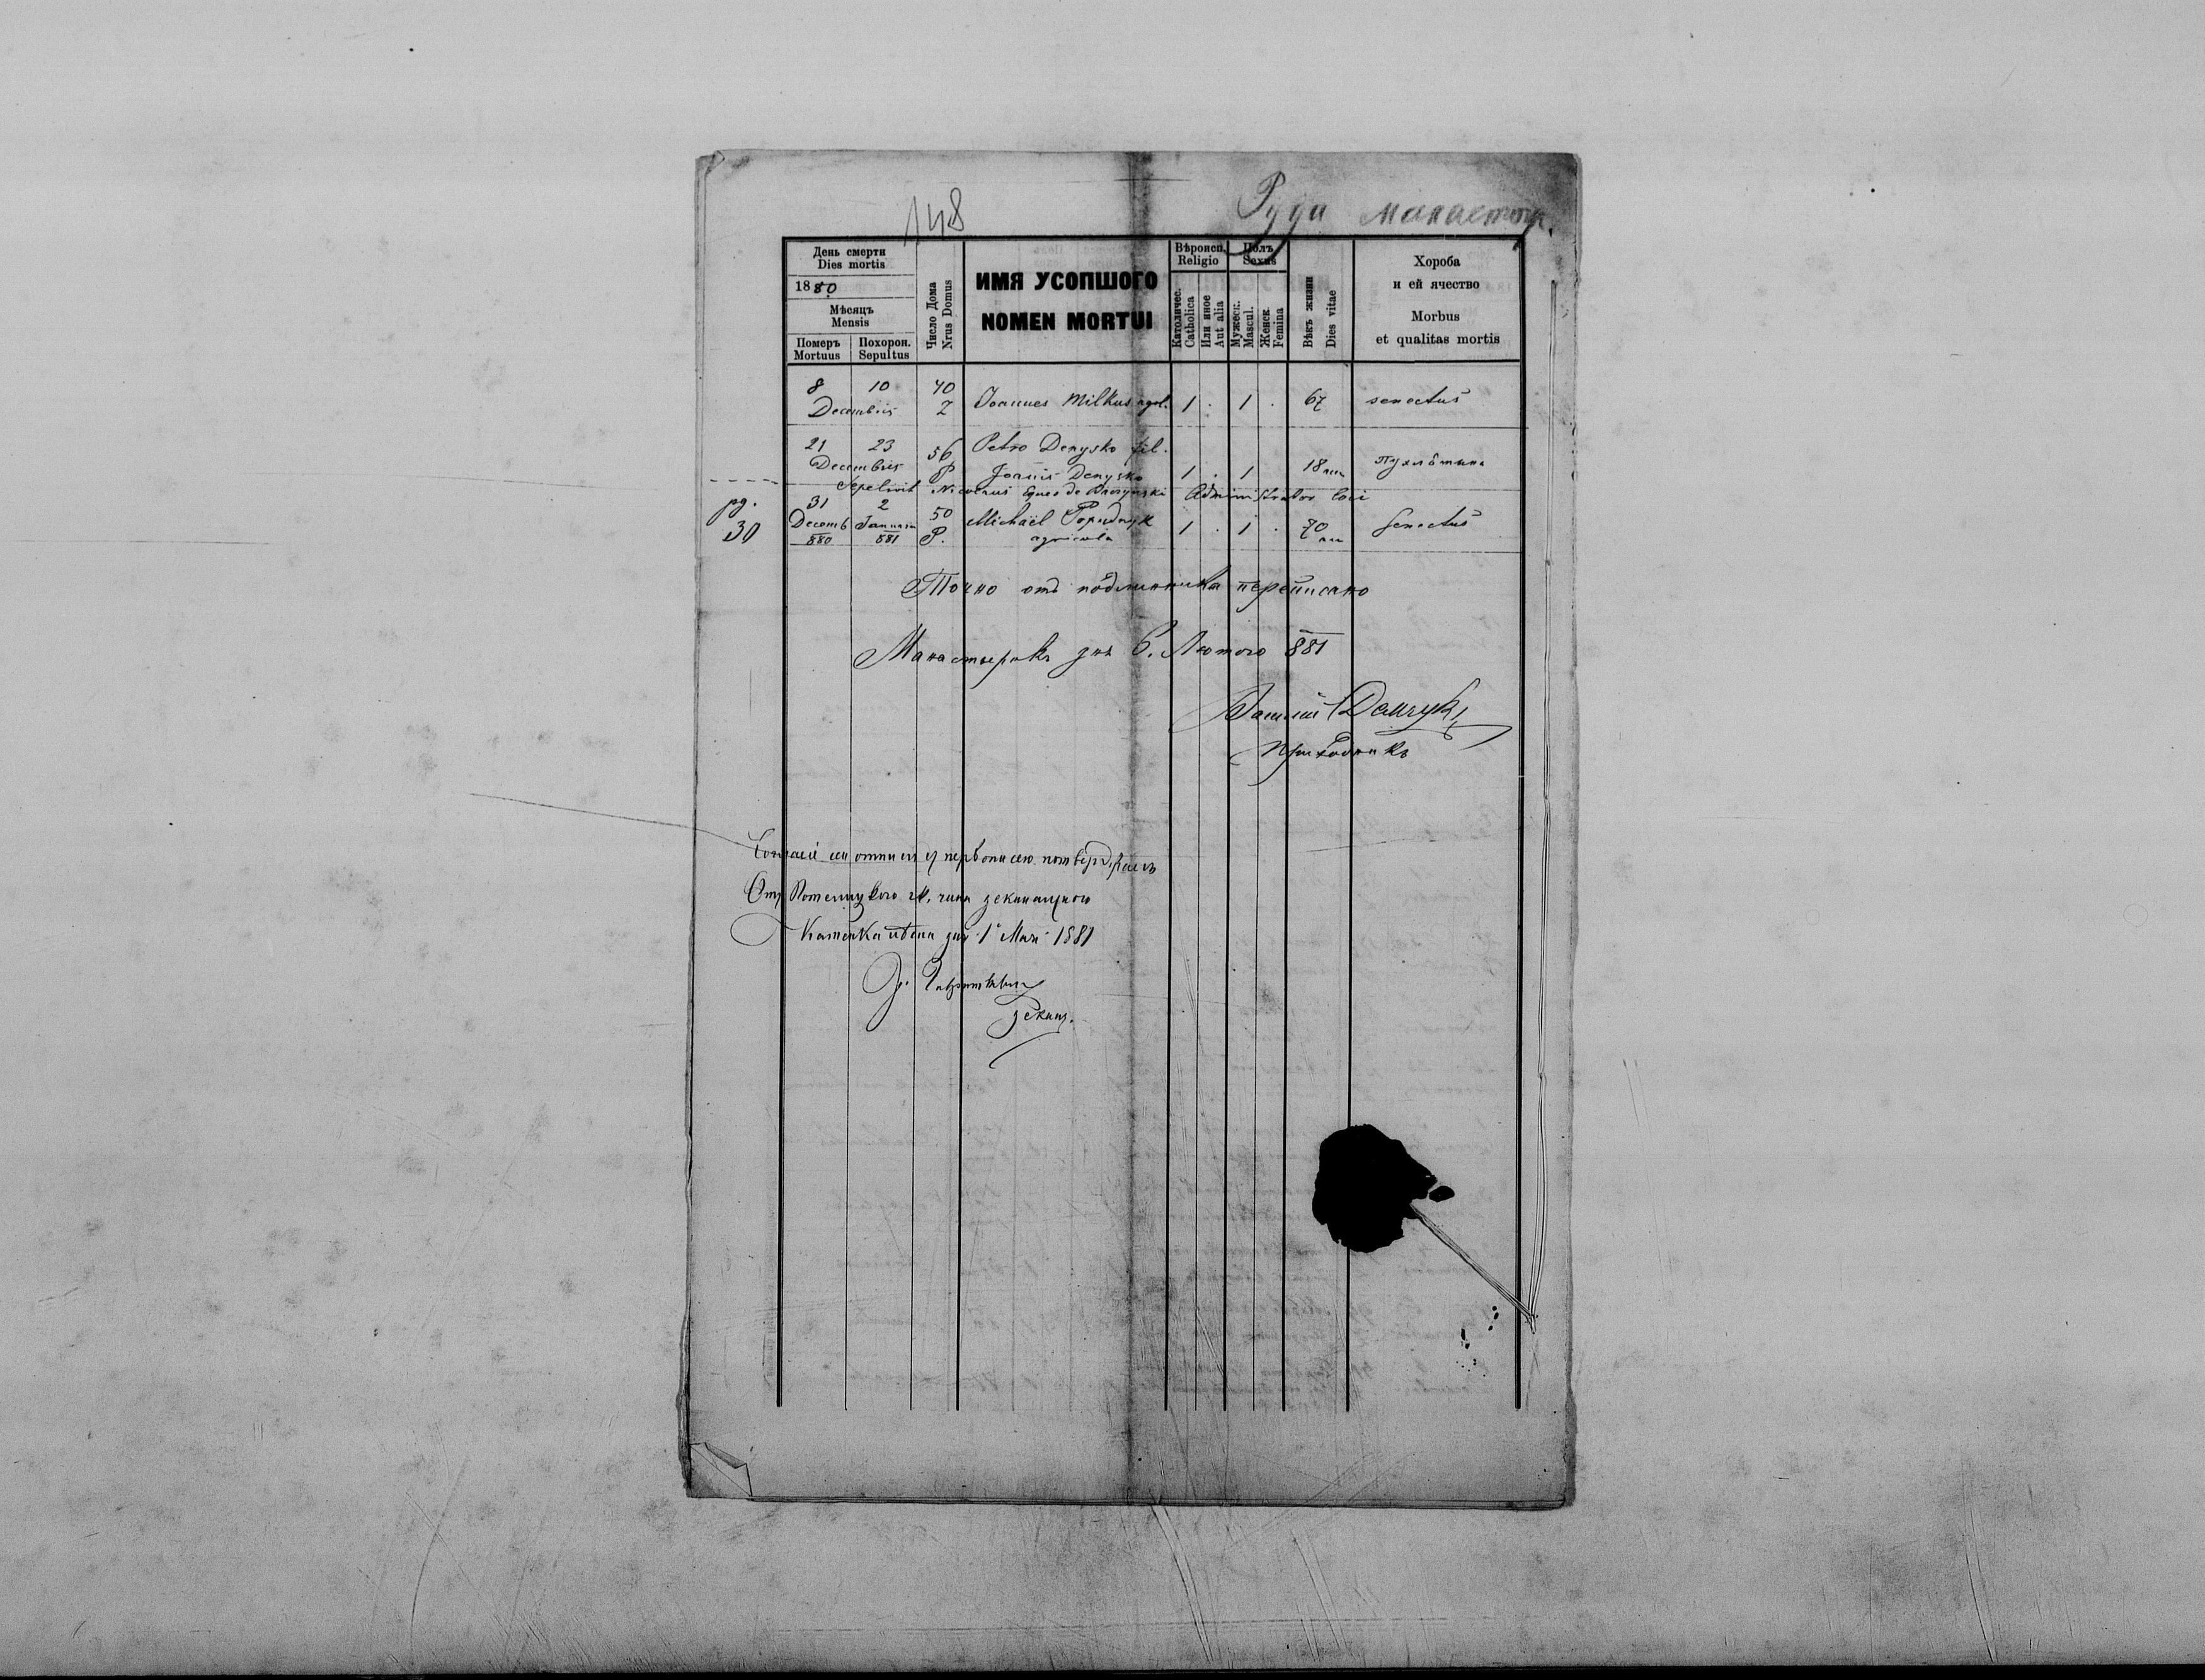 148
Руда Манастир.
День смерти
Dies mortis
1880
Мѣсяцъ
Mensis
Померъ
Mortuus
Похорон.
Sepultus
Число Дома
Nrus Domus
ИМЯ УСОПШОГО
NOMEN MORTUI
Вѣроисп.
Religio
Католичес.
Catholica
Или иное
Aut alia
Полъ
Sexus
Мужеск.
Mascul.
Женск.
Femina
Вѣкъ жизни
Dies vitae
Хороба
и ей ячество
Morbus
et qualitas mortis
8 10 40
Decembris Z Joannes Milkus agol. 1 . 1 . 67 senectus
21 23 56 Petro Denysko fil.
Decembris P Joannis Denysko 1 . 1 18
Sepelivit Nicolaus Eques de Administrator loci
pg. 31 2 50 Michaël Popudnyk 1 . 1 . 70 Senectus
30 Decemb Januarii P. agricola
880 881
Точно отъ подлинника переписано
Манастырокъ дня 6. Лютого 881
Василий Дамчук
приходникъ
отписи у первописею потверджаесь
От Потелицкого чина деканацкого
дня 1 Мая 1881
декан.